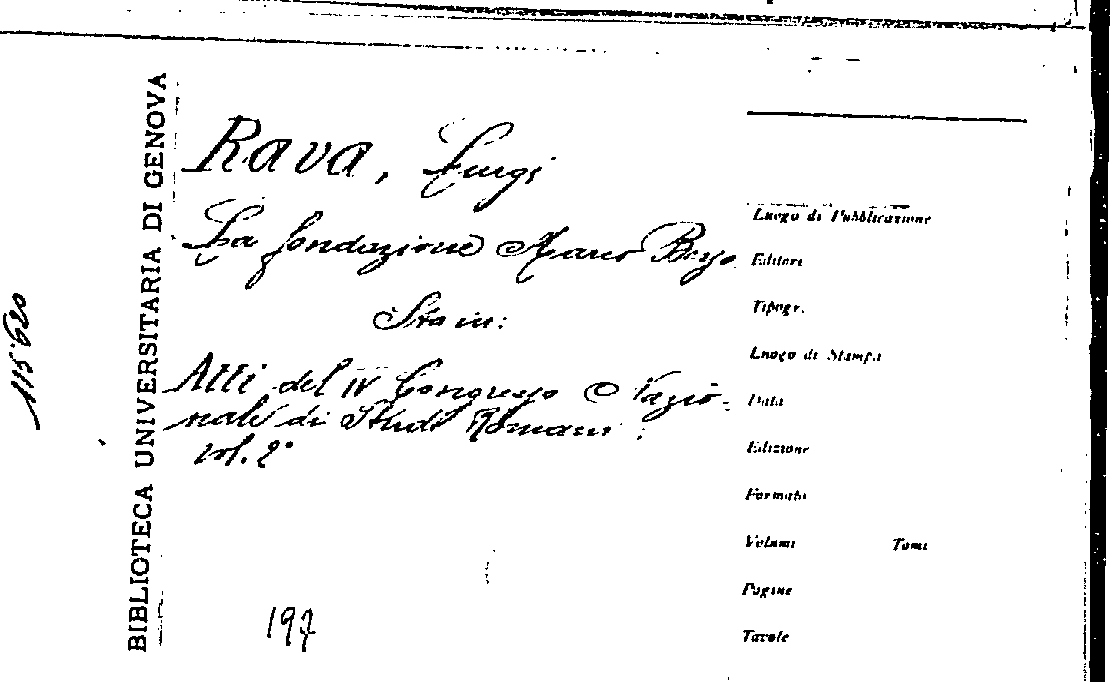 115.620
BIBLIOTECA UNIVERSITARIA DI GENOVA
Rava, Luigi
La fondazione Marco Besso
Sta in:
Atti del IV Congresso Nazio-
nale di Studi Romani.
vol. 2°
197
Luogo di Pubblicazione
Editori
Tipogr.
Luogo di Stampa
Data
Edizione
Formato
Volumi Tomi
Pagine
Tavole